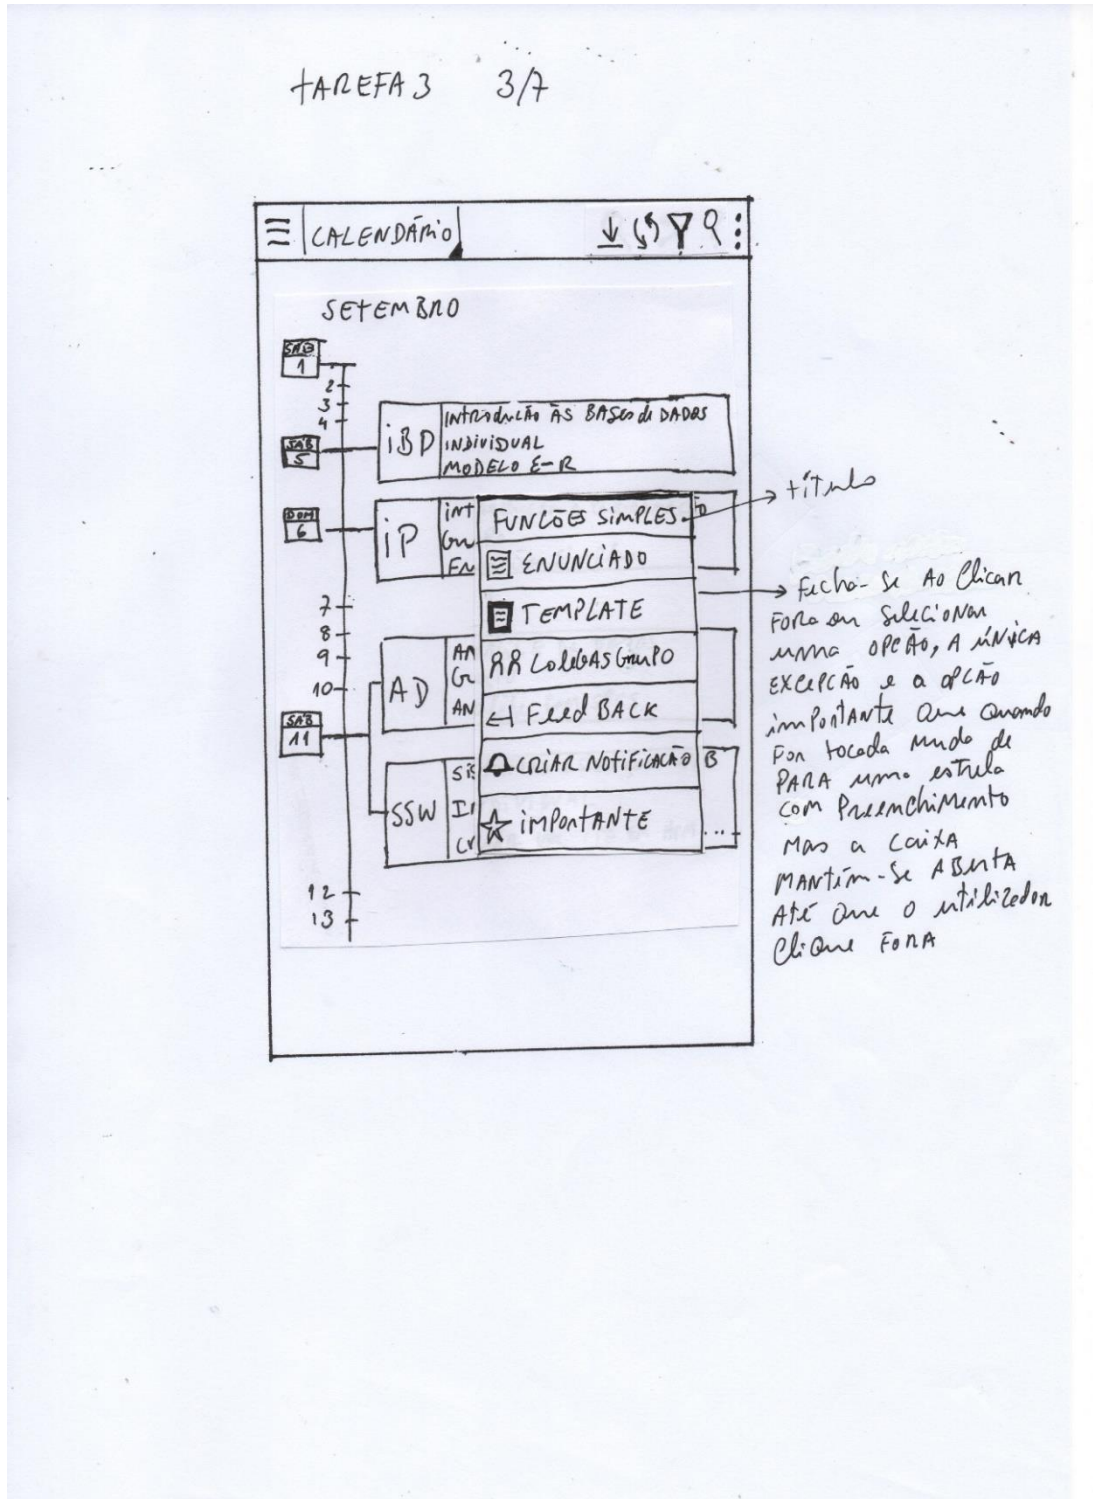 TAREFA 3 3/7
CALENDÁRIO
SETEMBRO
SÁB
1
2
3
4
SÁB
5
iBD
INTRODUCÃO ÀS BASES de DADOS
INDIVIDUAL
MODELO E-R
DOM
6
iP
iNT
GRU
EN
7
8
9
10
SÁB
11
AD
AN
G
AN
SSW
Sis
I
12
13
FUNCÕES SIMPLES
ENUNCIADO
TEMPLATE
COLEGAS GRUPO
FeedBACK
CRIAR NOTIFICACÃO
B
IMPORTANTE
...
título
Fecha-se Ao Clicar
FORA ou Selecionar
uma OPCÃO, A ÚNICA
EXCEPCÃO e a OPCÃO
imPORTANTE Que Quando
For tocada Muda de
PARA uma estrela
com Preenchimento
Mas a Caixa
MANtém-Se ABerta
Até Que o utilizador
Clique FORA